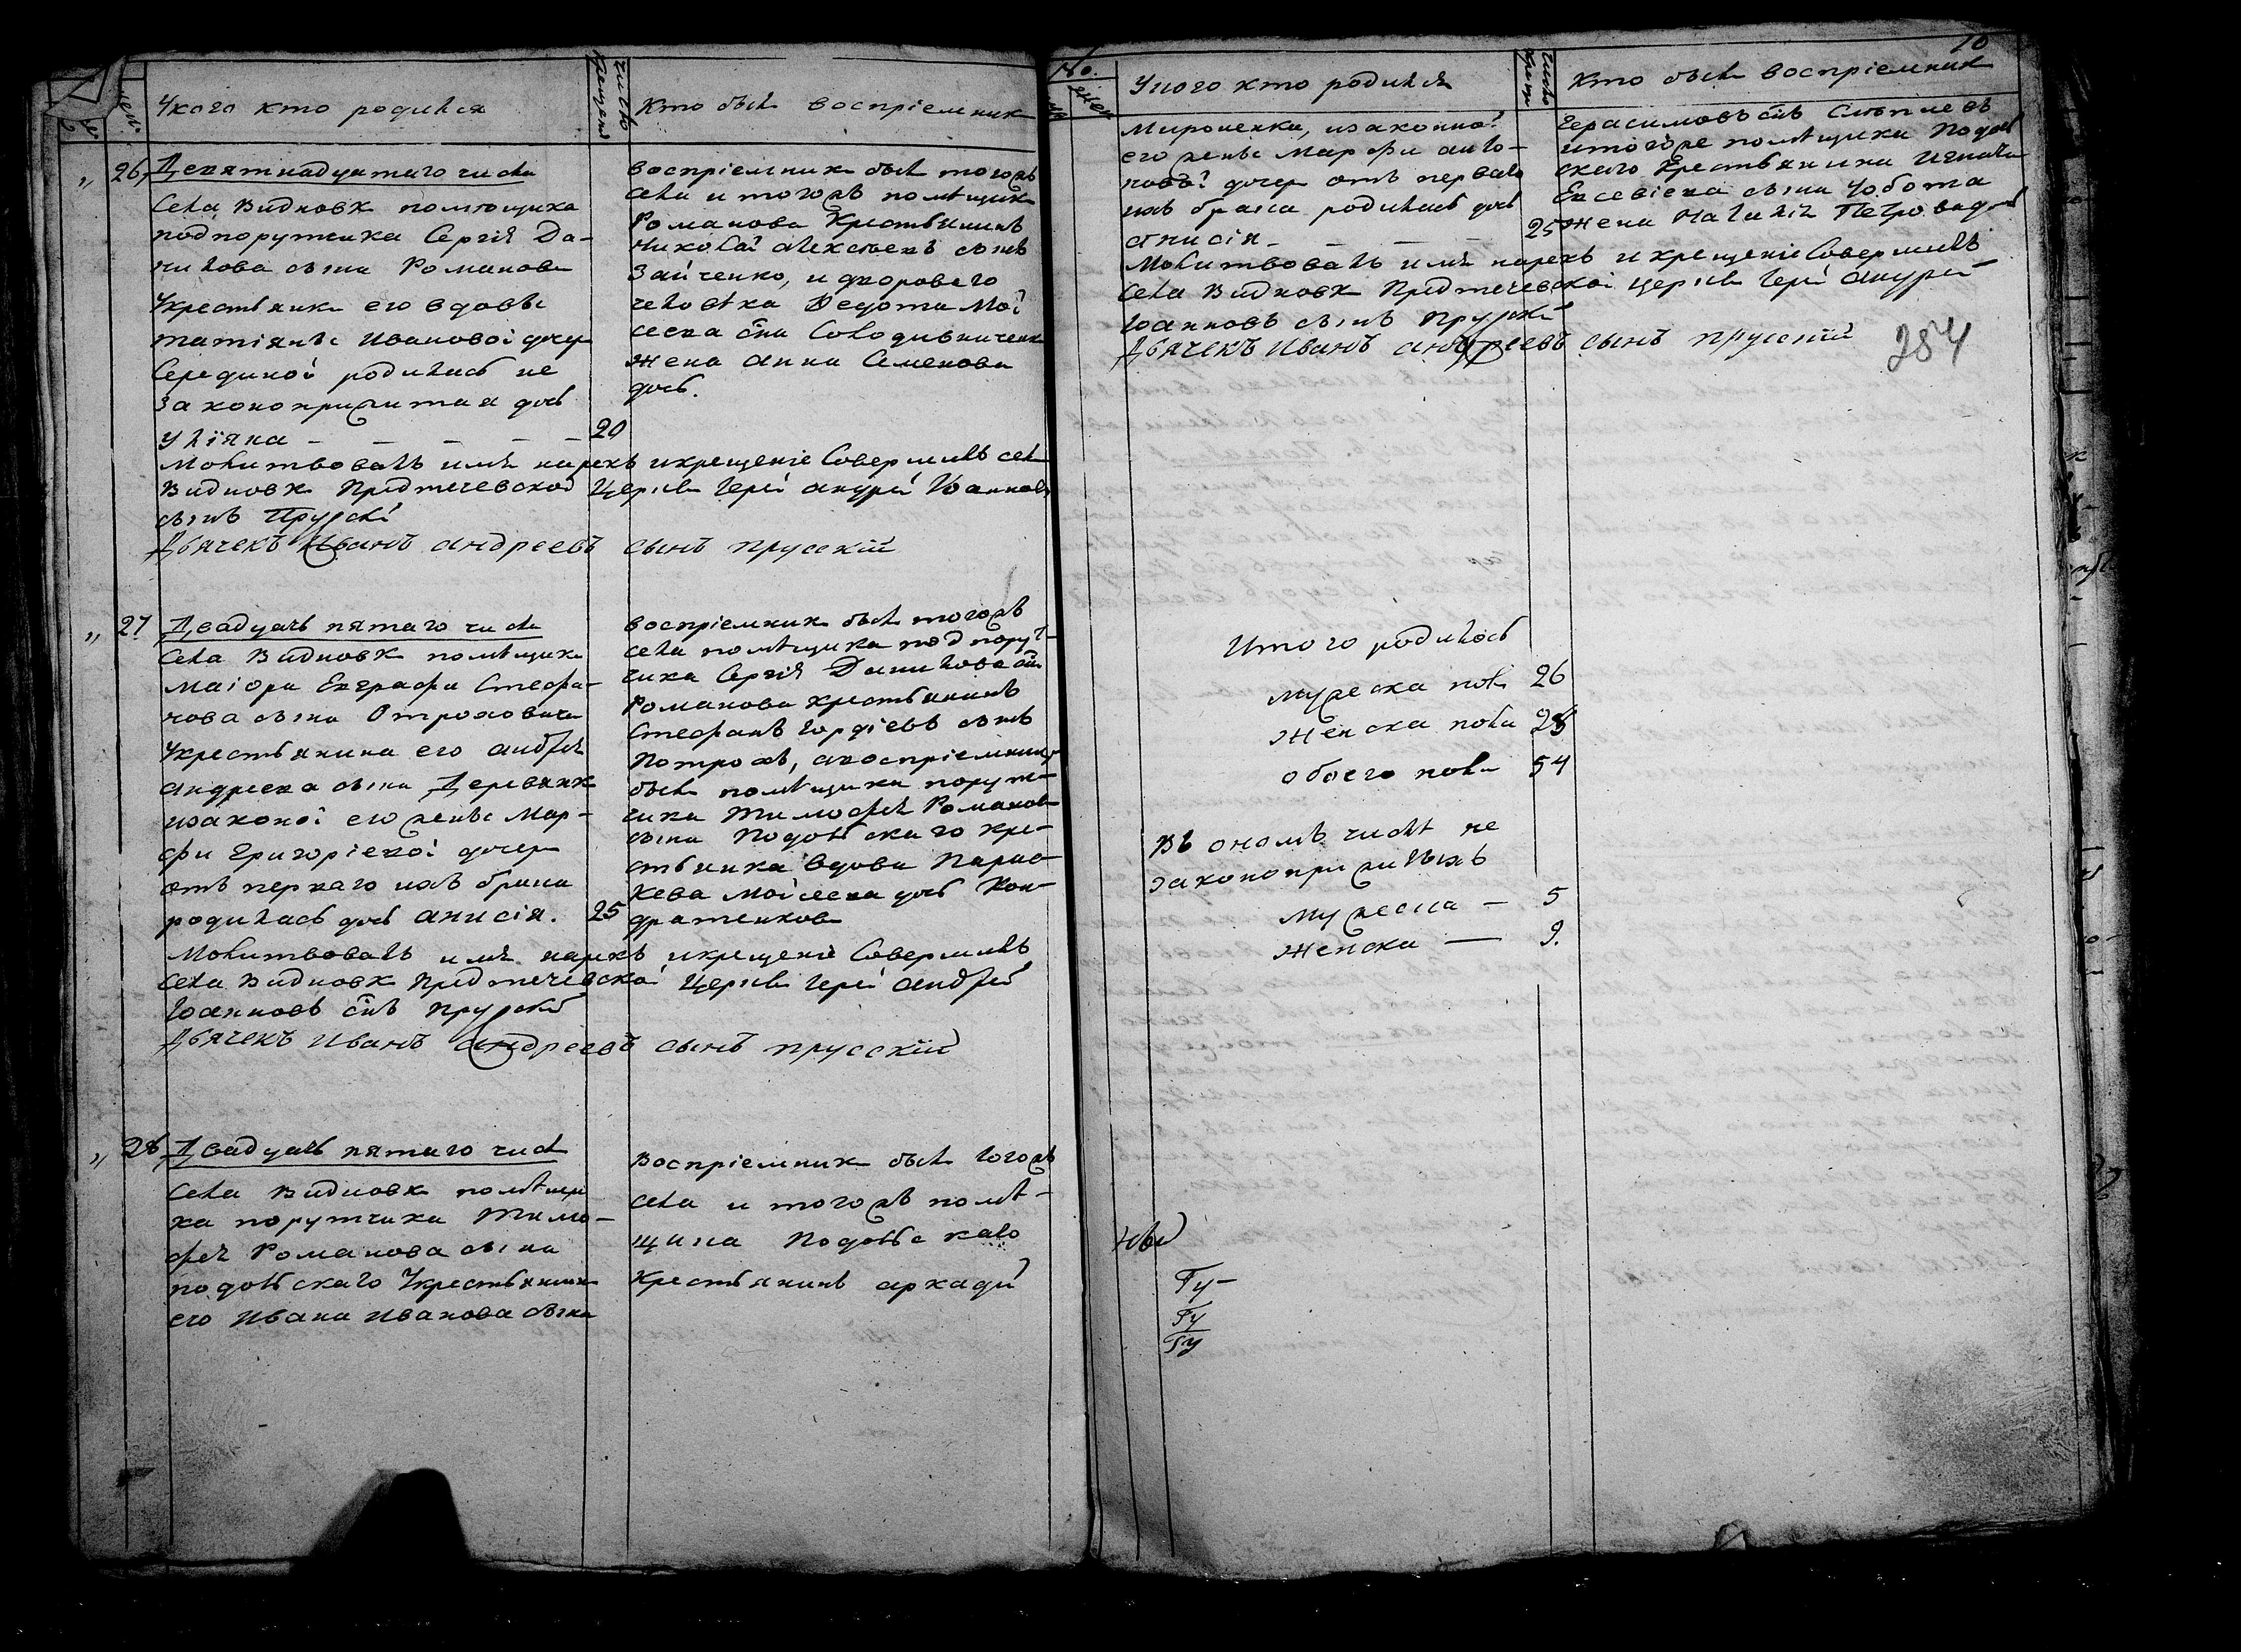 Укого кто родился
число крещенія
Кто былъ воспріемникъ
„ 26, Девятнадцатаго числа
села Видновк помѣщика
подпорутчика Сергія Да-
нилова сына Романова
Укрестьянки его вдовы
татіяны Ивановой дочери
Серединой родилась не
законоприжитая дочь
Уліяна - - - - - 20
воспріемник былъ тогожъ
села и тогожъ помѣщика
Романова Крестьянинъ
Николай алексѣевъ сынъ
Зайченко, и дворового
человѣка Федота Мои
сеева сна Солодивниченка
жена анна Семенова
дочь.
Молитвовалъ имя нарекъ и крещеніе Совершилъ села
Видновк Предтечевской Церкви Іерей андрей Іоанновъ
сынъ Прускій
Дьячекъ Иванъ андреевъ сынъ прусскій
„ 27 Двадцать пятаго числа
села Видновк помѣщика
маіора Евграфа Стефа-
нова сына Отроховича
Укрестьянина его андрея
андреева сына Деревянк
изаконой его жены Мар-
фы Григоріевой дочери
отъ перваго ихъ брака
родилась дочь анисія. 25
воспріемник былъ тогожъ
села помѣщика подпору-
чика Сергія Данилова сна
Романова крестьянинъ
Стефанъ Гордіевъ сынъ
Потрохъ, авоспріемница
была помѣщика порут-
чика Тимофея Романова
сына Подольскаго кре-
стьянка вдова Парас-
кева Мойсеева дочь Кон-
дратенкова
Молитвовалъ имя нарекъ и крещеніе Совершилъ
села Видновк Предтечевской Церкви Іерей андрей
Іоанновъ снъ Прускій
Дьячекъ Иванъ андреевъ сынъ прусскій
„ 28, Двадцать пятаго числа
села Видновк помѣщи
ка порутчика Тимо-
фея Романова сына
подольскаго Укрестьянина
его Ивана Иванова сына
Воспріемник былъ тогожъ
села и тогожъ помѣ-
щика Подольскаго
Крестьянинъ аркадій
10
Укого кто родился
число крещ
Кто былъ воспріемник
Мироненка, изаконной
его жены Марфы анто-
новой дочери отъ перваго
ихъ брака родилась дочь
анисія - - - - 25
Герасимовъ снъ
итогоже помѣщика Подол
скаго Крестьянина Игнатія
Евсевіева сына Чобота
жена Наталія Петрова дочь
Молитвовалъ имя нарекъ и крещеніе Совершилъ
села Видновк Предтечевской церкви Іерей андрей
Іоанновъ сынъ Прускій
Дьячекъ Иванъ андреевъ сынъ прусскій
284
Итого родилось
мужеска пола 26
Женска пола 28
обоего пола 54
Въ ономъ числѣ не
законоприжитыхъ
мужеска - 5
Женска — 9.
Гу-
Гу
Гу